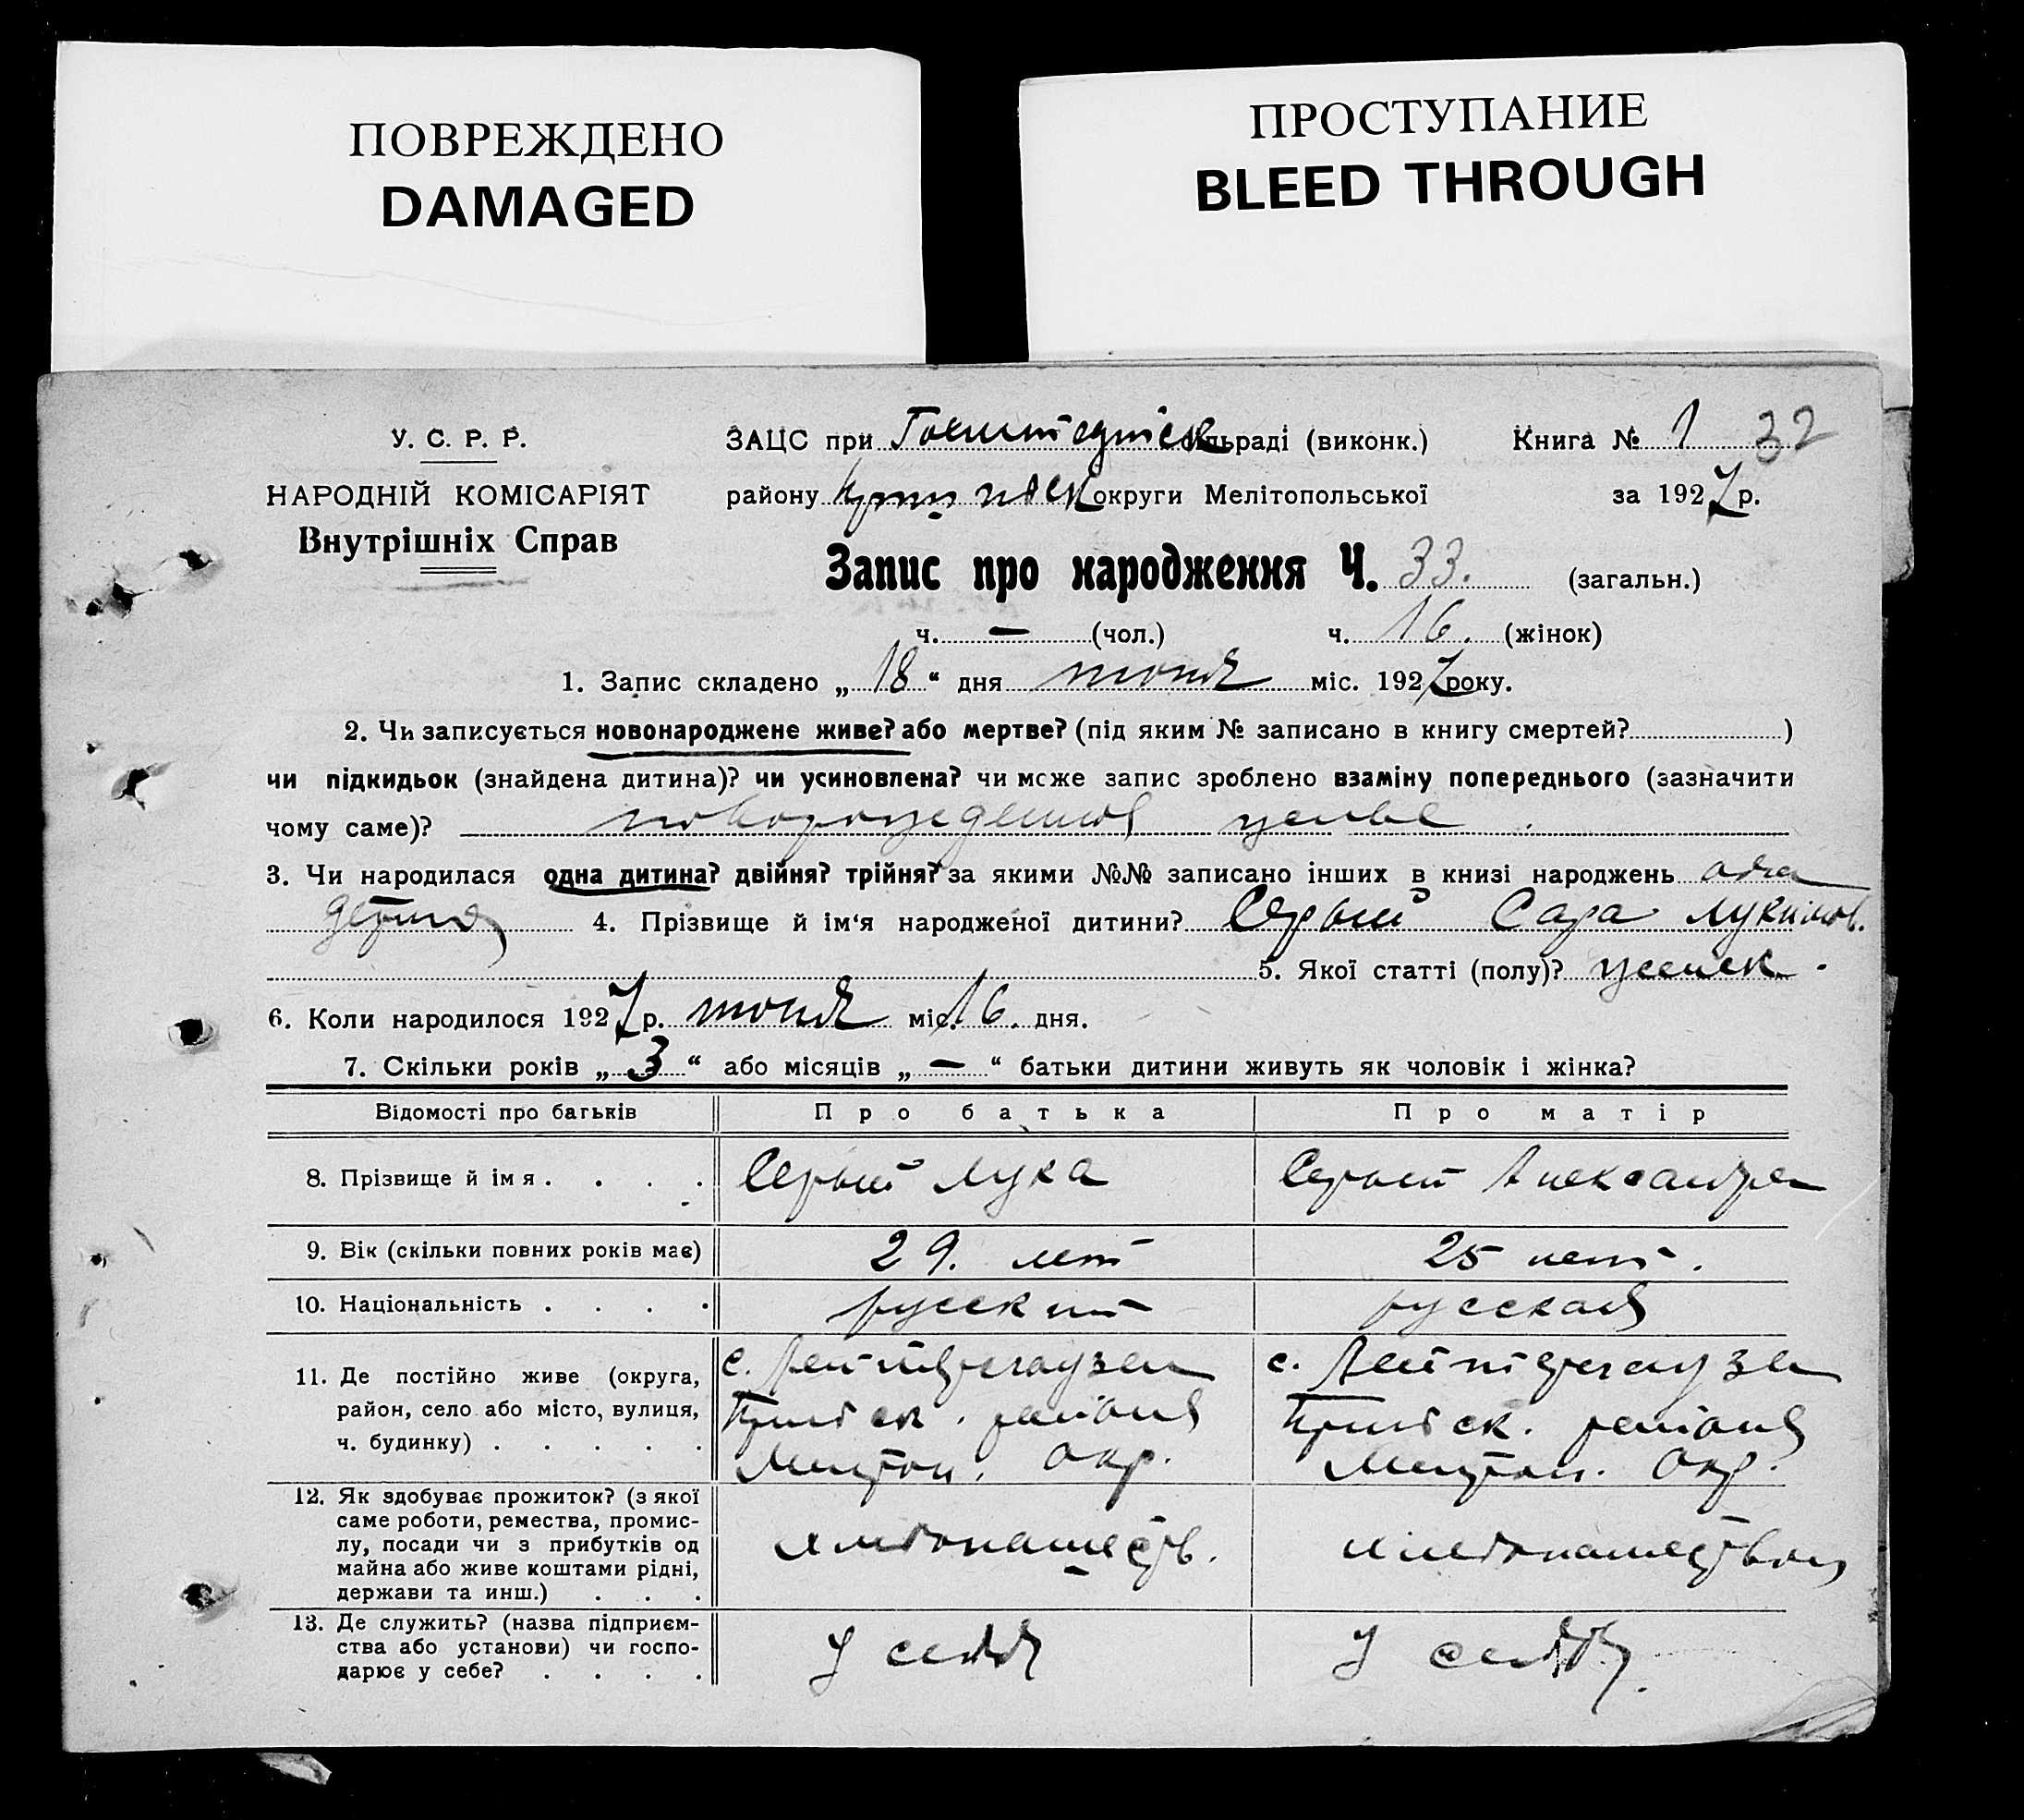 ПОВРЕЖДЕНО
DAMAGED
ПРОСТУПАНИЕ
BLEED THROUGH
У. С. Р. Р.
НАРОДНІЙ КОМІСАРІЯТ
Внутрішніх Справ
ЗАЦС при сільраді (виконк.) Книга № 1 32
району округи Мелітопольської за 1927 р.
Запис про народження Ч. 33. (загальн.)
ч. — (чол.) ч. 16. (жінок)
1. Запис складено „ 18 “ дня июня міс. 1927 року.
2. Чи записується новонароджене живе? або мертве? (під яким № записано в книгу смертей? )
чи підкидьок (знайдена дитина)? чи усиновлена? чи може запис зроблено взаміну попереднього (зазначити
чому саме)? новорожденная живе .
3. Чи народилася одна дитина? двійня? трійня? за якими №№ записано інших в книзі народжень одна
детина 4. Прізвище й ім'я народженої дитини? Серый Сара Лукинов.
5. Якої статті (полу)? женск.
6. Коли народилося 1927 р. июня міс. 16. дня.
7. Скільки років „ 3 “ або місяців „ — “ батьки дитини живуть як чоловік і жінка?
Відомості про батьків Про батька Про матір
8. Прізвище й імя . . . . Серый Лука Серый Александра
9. Вік (скільки повних років має) 29. лет 25 лет.
10. Національність . . . . русский русская
11. Де постійно живе (округа,
район, село або місто, вулиця,
ч. будинку) . . . . .
с. Лейтерсгаузен
Пришибск. района
Мелитоп. Окр.
с. Лейтерсгаузен
Пришибск. района
Мелитоп. Окр.
12. Як здобуває прожиток? (з якої
саме роботи, ремества, промис-
лу, посади чи з прибутків од
майна або живе коштами рідні,
держави та инш.) . . .
хлебопашеств.
хлебопашеством
13. Де служить? (назва підприєм-
ства або установи) чи госпо-
дарює у себе? . . . .
У себя
У себя.